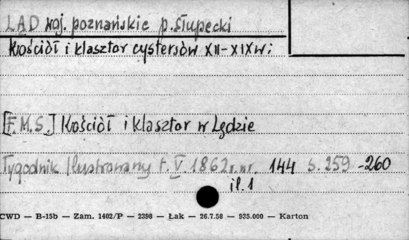 LAD woj. poznańskie p. słupecki
Kościół i klasztor cystersów XII-XIXw;
[F.M.S.] Kościół i klasztor w Lędzie
Tygodnik Ilustrowany t. V 1862r. nr. 144 s. 259-260
il. 1
CWD — B-15b — Zam. 1402/P — 2398 — Łak — 26.7.58 — 935.000 — Karton